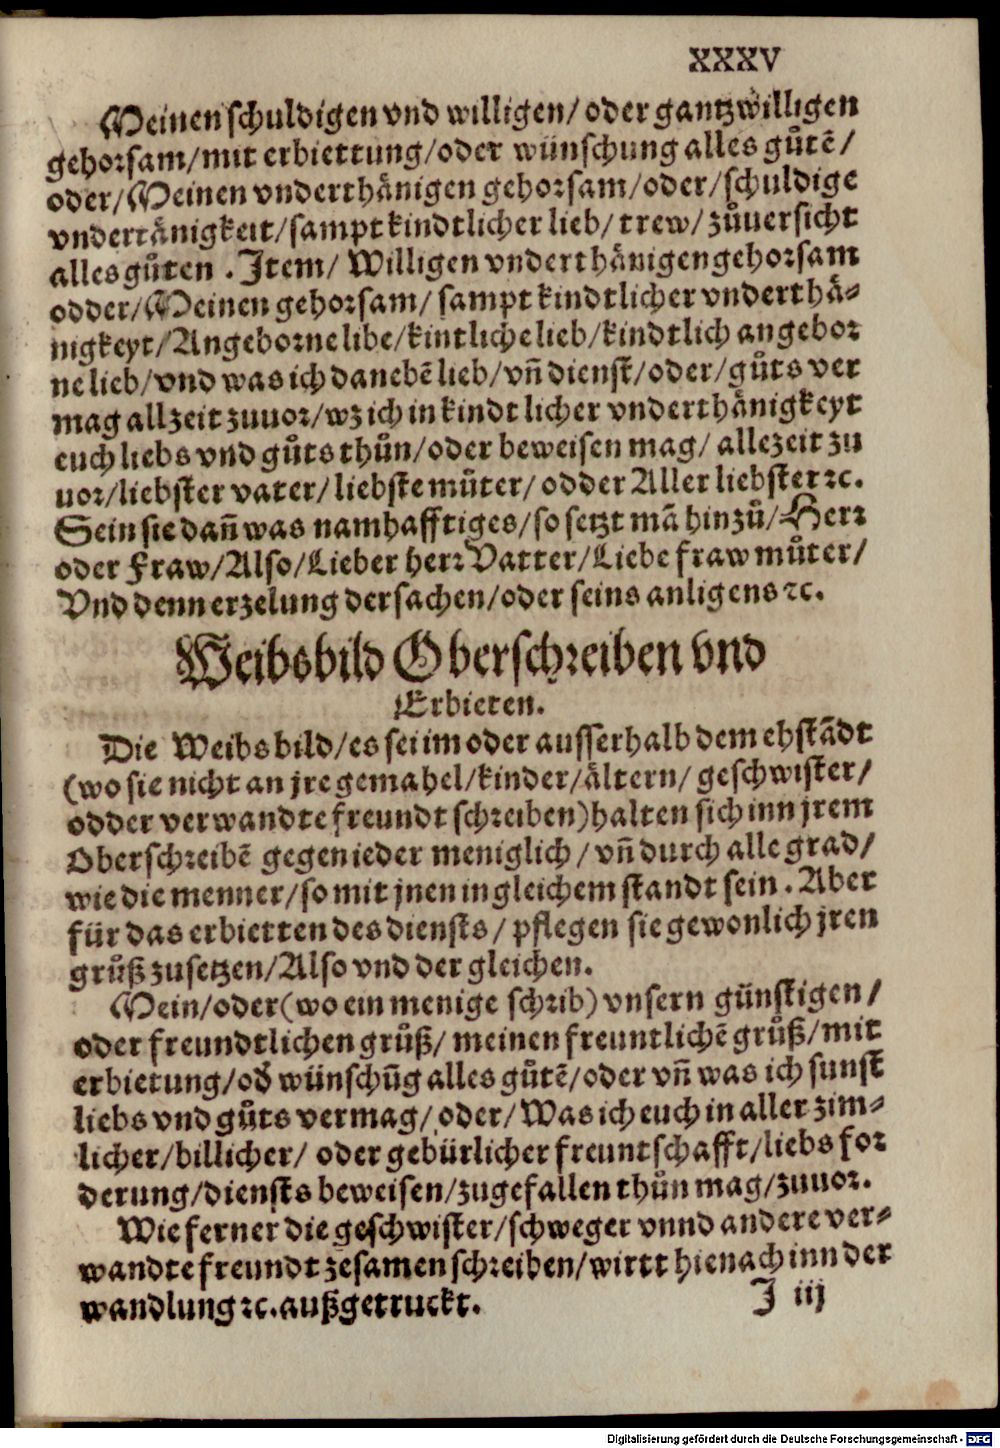 XXXV
Meinen schuldigen vnd willigen/ oder gantz willigen
gehorsam/mit erbiettung/oder wünschung alles gůtẽ/
oder/Meinen vnderthänigen gehorsam/oder/schuldige
vndertänigkeit/sampt kindtlicher lieb/ trew/ zůuersicht
alles gůten . Item/ Willigen vnderthänigen gehorsam
odder/Meinen gehorsam/ sampt kindtlicher vnderthä⸗
nigkeyt/Angeborne libe/kintliche lieb/kindtlich angebor
ne lieb/vnd was ich danebẽ lieb/vñ dienst/oder/gůts ver
mag allzeit zuuor/wz ich in kindtlicher vnderthänigkeyt
euch liebs vnd gůts thůn/oder beweisen mag/ allezeit zu
uor/liebster vater/liebste můter/ odder Aller liebster ꝛc.
Sein sie dañ was namhafftiges/so setzt mã hinzů/Herr
oder Fraw/Also/Lieber herr Vatter/Liebe fraw můter/
Vnd denn erzelung der sachen/oder seins anligens ꝛc.
Weibsbild Oberschreiben vnd
Erbieten.
Die Weibsbild/es sei im oder ausserhalb dem ehstãdt
(wo sie nicht an jre gemahel/kinder/ältern/ geschwister/
odder verwandte freundt schreiben)halten sich inn jrem
Oberschreibẽ gegen ieder meniglich/vñ durch alle grad/
wie die menner/so mit jnen in gleichem standt sein . Aber
für das erbietten des diensts/ pflegen sie gewonlich jren
grůß zusetzen/Also vnd der gleichen.
Mein/oder(wo ein menige schrib) vnsern günstigen/
oder freundtlichen grůß/ meinen freuntlichẽ grůß/mit
erbietung/oď wünschũg alles gůtẽ/oder vñ was ich sunst
liebs vnd gůts vermag/ oder/Was ich euch in aller zim⸗
licher/billicher/ oder gebürlicher freuntschafft/liebs for
derung/diensts beweisen/zugefallen thůn mag/zuuor.
Wie ferner die geschwister/schweger vnnd andere ver⸗
wandte freundt zesamen schreiben/wirtt hienach inn der
wandlung ꝛc.außgetruckt.
J iij
Digitalisierung gefördert durch die Deutsche Forschungsgemeinschaft - DFG